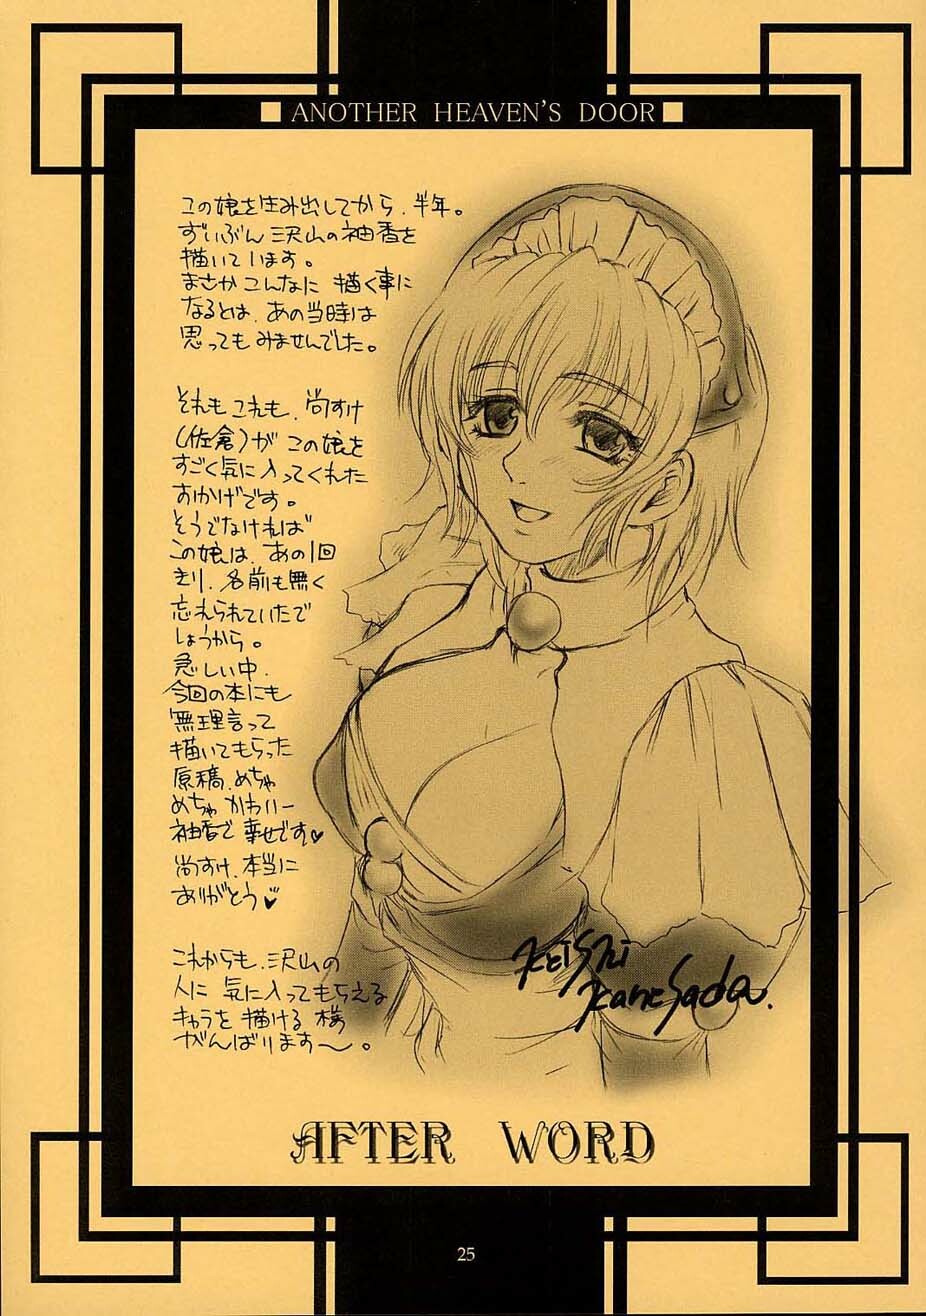 ■ ANOTHER HEAVEN'S DOOR ■
この娘を生み出してから、半年。
ずいぶん沢山の袖香を
描いています。
まさかこんなに描く事に
なるとは、あの当時は
思ってもみませんでした。
それもこれも、尚すけ
(佐倉)がこの娘を
すごく気に入ってくれた
おかげです。
そうでなければ
この娘は、あの1回
きり、名前も無く
忘れられていたで
しょうから。
急しい中、
今回の本にも
無理言って
描いてもらった
原稿、めちゃ
めちゃかわいー
袖香で幸せです♥
尚すけ、本当に
ありがとう♥
これからも、沢山の
人に気に入ってもらえる
キャラを描ける様
がんばります〜。
Keishi
Kanesada.
AFTER WORD
25